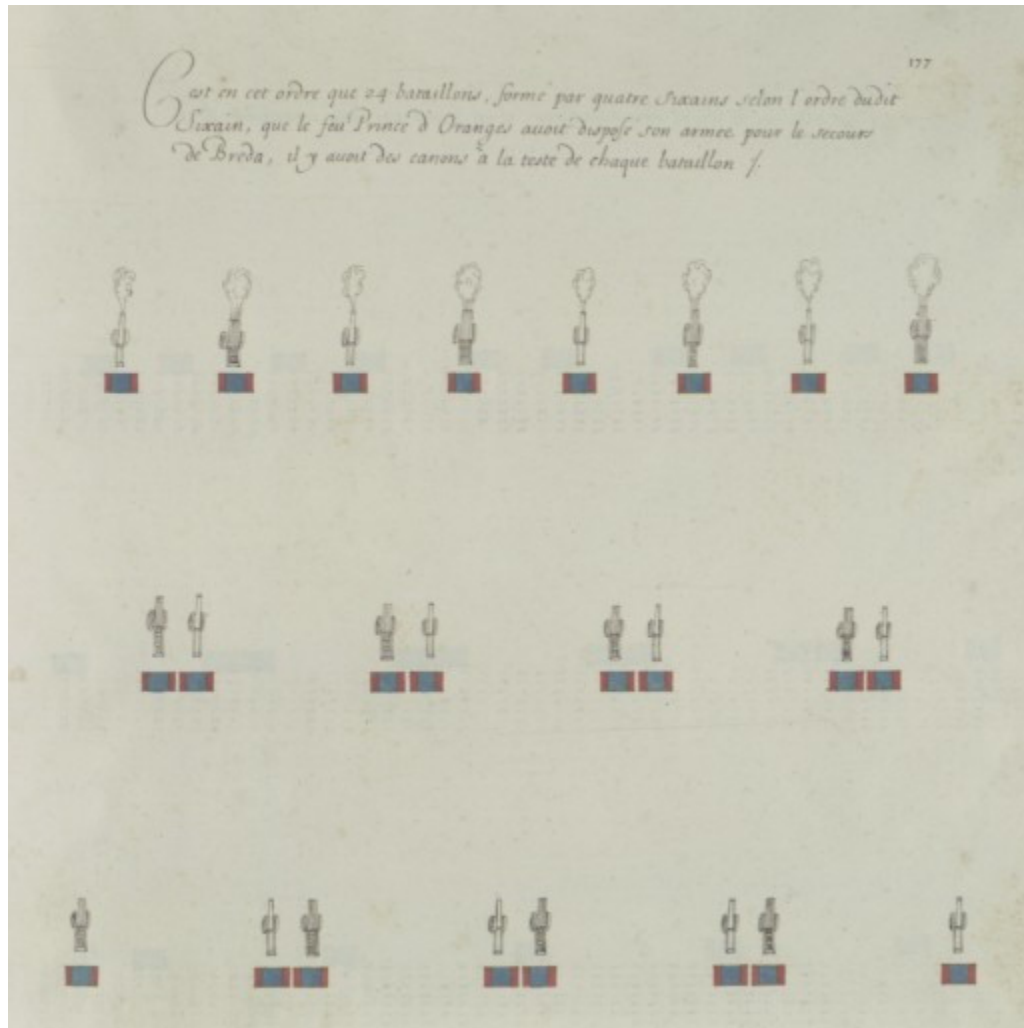 177
C'est en cet ordre que 24 bataillons, formé par quatre Sixains selon l'ordre dudit
Sixain, que le feu Prince d'Oranges avoit disposé son armée pour le secours
de Breda, il y avoit des canons à la teste de chaque bataillon /.